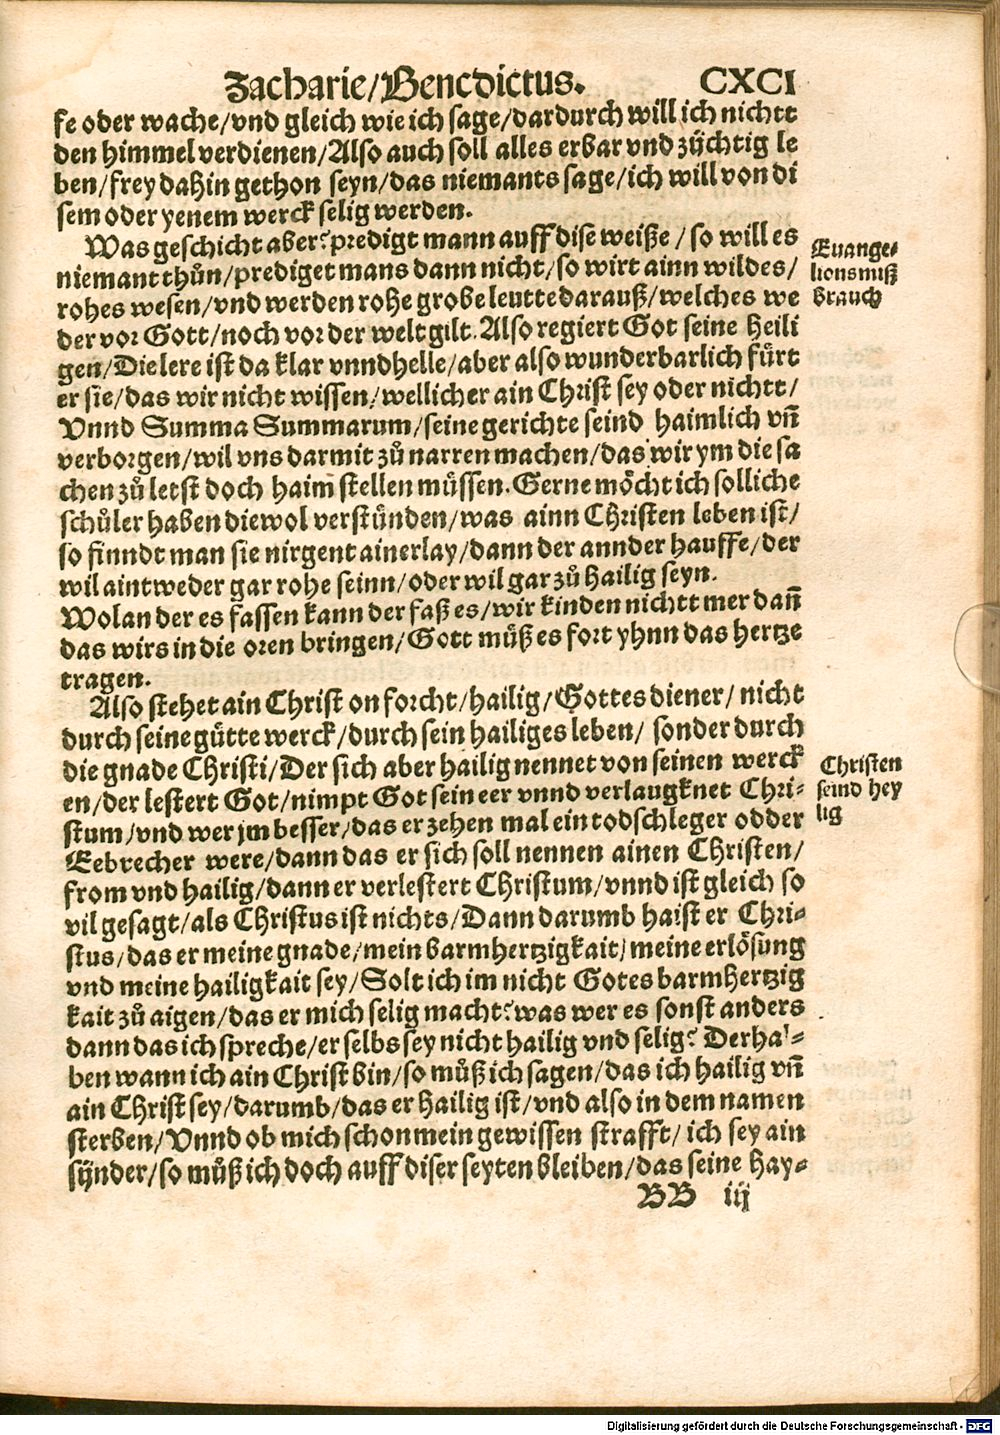 Zacharie/Benedictus. CXCI
fe oder wache/vnd gleich wie ich sage/dardurch will ich nichtt
den himmel verdienen/Also auch soll alles erbar vnd züchtig le
ben/frey dahin gethon seyn/das niemants sage/ich will von di
sem oder yenem werck selig werden.
Was geschicht aber? predigt mann auff dise weiße/so will es
niemant thůn/prediget mans dann nicht/so wirt ainn wildes/
rohes wesen/vnd werden rohe grobe leutte darauß/welches we
der vor Gott/noch vor der welt gilt. Also regiert Got seine heili
gen/Die lere ist da klar vnnd helle/aber also wunderbarlich fürt
er sie/das wir nicht wissen/wellicher ain Christ sey oder nichtt/
Vnnd Summa Summarum/seine gerichte seind haimlich vñ
verborgen/wil vns darmit zů narren machen/das wir ym die sa
chen zů letst doch haim stellen müssen. Gerne möcht ich solliche
schůler haben die wol verstünden/was ainn Christen leben ist/
so finndt man sie nirgent ainerlay/dann der annder hauffe/der
wil aintweder gar rohe seinn/oder wil gar zů hailig seyn.
Wolan der es fassen kann der faß es/wir kinden nichtt mer dañ
das wirs in die oren bringen/Gott můß es fort yhnn das hertze
tragen.
Also stehet ain Christ on forcht/hailig/Gottes diener/nicht
durch seine gůtte werck/durch sein hailiges leben/sonder durch
die gnade Christi/Der sich aber hailig nennet von seinen werck
en/der lestert Got/nimpt Got sein eer vnnd verlaugknet Chri-
stum/vnd wer jm besser/das er zehen mal ein todschleger odder
Eebrecher were/dann das er sich soll nennen ainen Christen/
from vnd hailig/dann er verlestert Christum/vnnd ist gleich so
vil gesagt/als Christus ist nichts/Dann darumb haist er Chri-
stus/das er meine gnade/mein barmhertzigkait/meine erlösung
vnd meine hailigkait sey/Solt ich im nicht Gotes barmhertzig
kait zů aigen/das er mich selig macht? was wer es sonst anders
dann das ich spreche/er selbs sey nicht hailig vnd selig? Derhal-
ben wann ich ain Christ bin/so můß ich sagen/das ich hailig vñ
ain Christ sey/darumb/das er hailig ist/vnd also in dem namen
sterben/Vnnd ob mich schon mein gewissen strafft/ich sey ain
sünder/so můß ich doch auff diser seyten bleiben/das seine hay-
BB iij
Euange-
lions miß
brauch
Christen
seind hey
lig
Digitalisierung gefördert durch die Deutsche Forschungsgemeinschaft - DFG